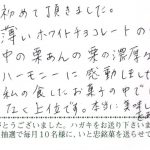 初めて頂きました。
薄いホワイトチョコレートの
中の栗あんの栗の濃厚な
ハーモニーに感動しました
私の食したお菓子の中で
なく上位です。本当に美味し
がとうございました。ハガキをお送り下さいま
抽選で毎月10名様に、いと忠銘菓を送らせて